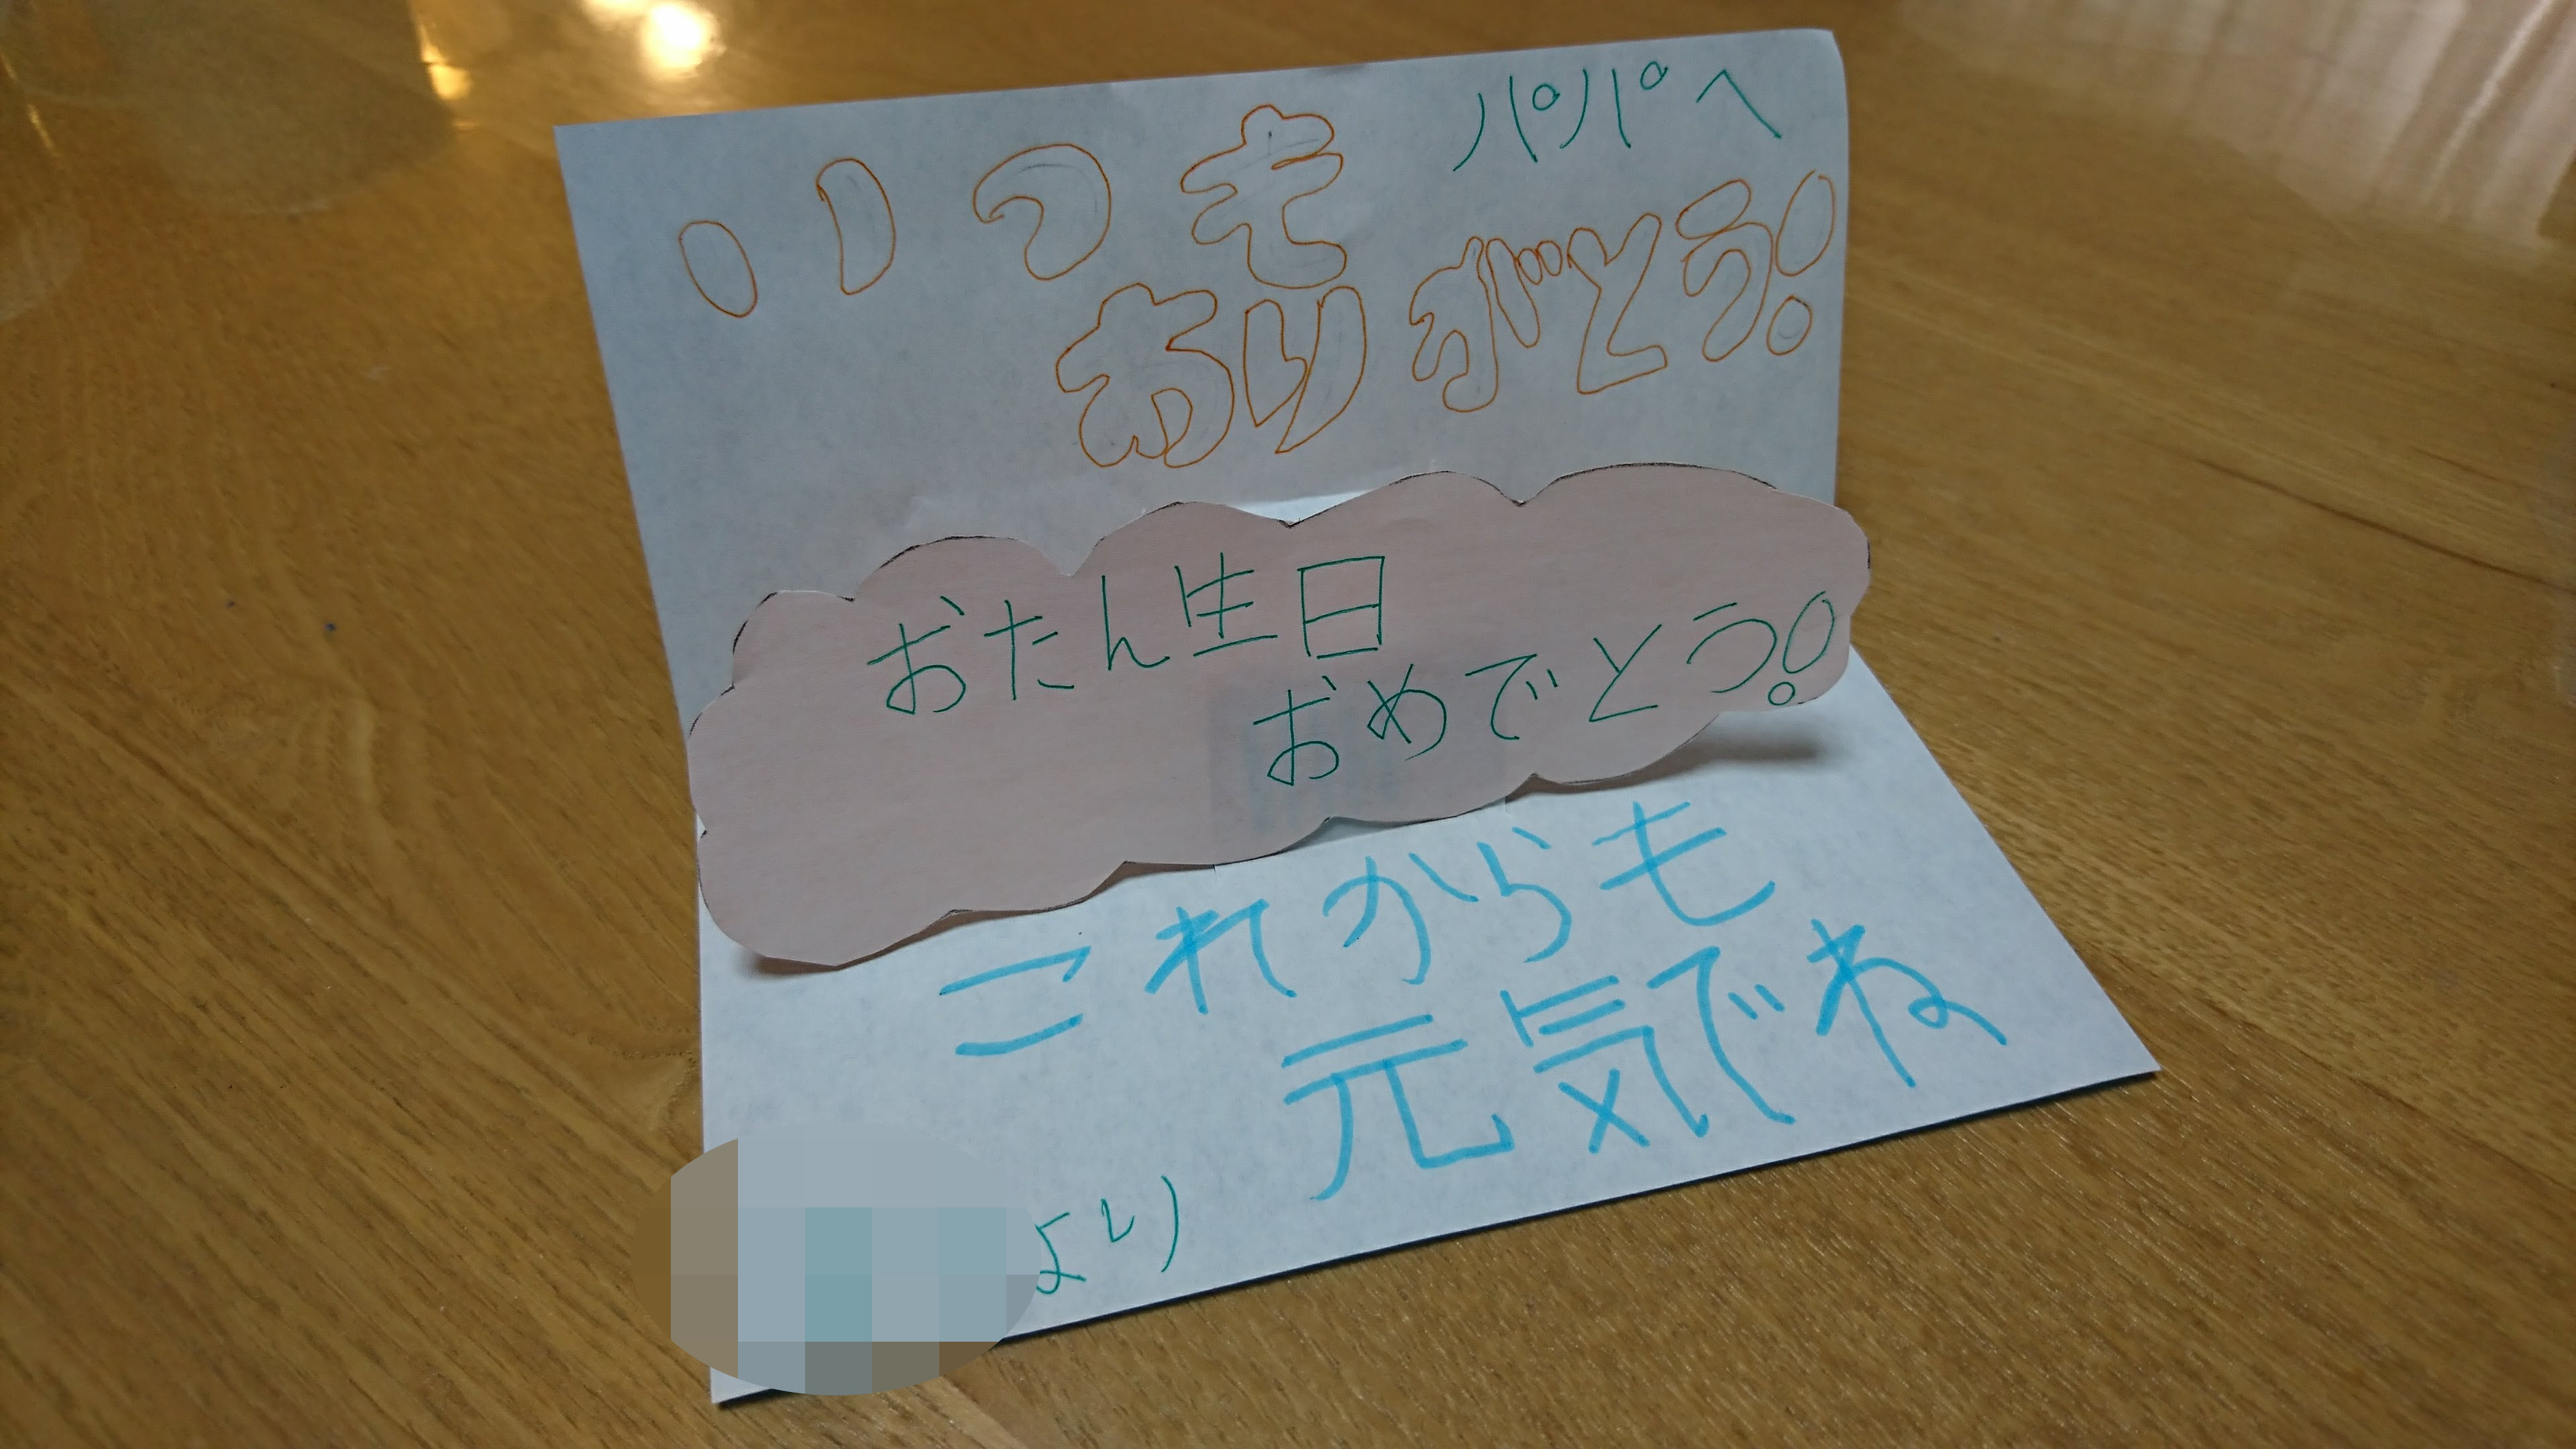 パパへ
いつも
ありがとう!
おたん生日
おめでとう!
これからも
元気でね
より